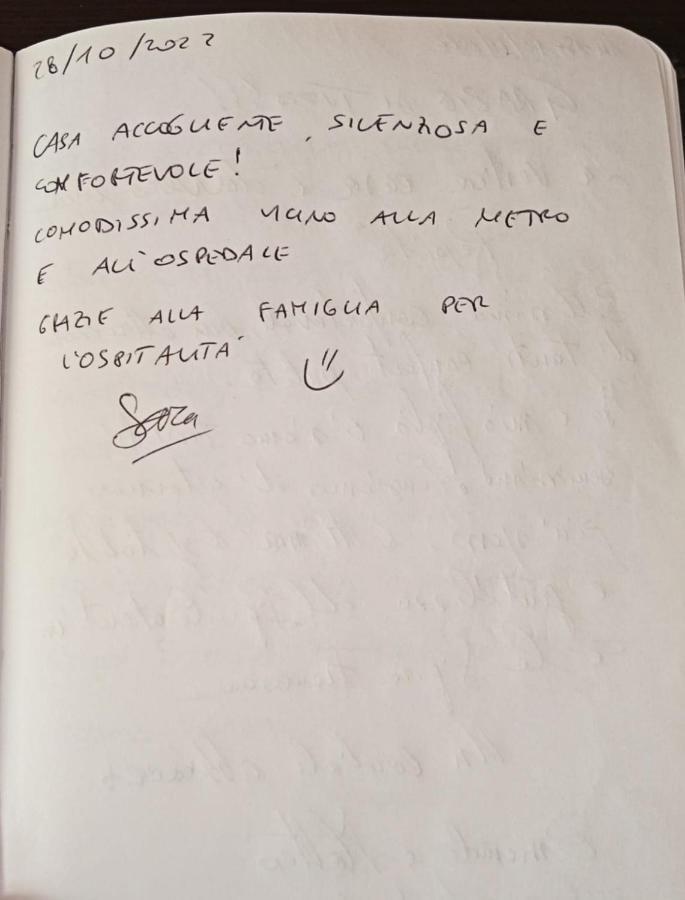 28/10/2022
CASA ACCOGLIENTE, SILENZIOSA E
CONFORTEVOLE!
COMODISSIMA VICINO ALLA METRO
E ALL'OSPEDALE
GRAZIE ALLA FAMIGLIA PER
L'OSPITALITÀ
Sara